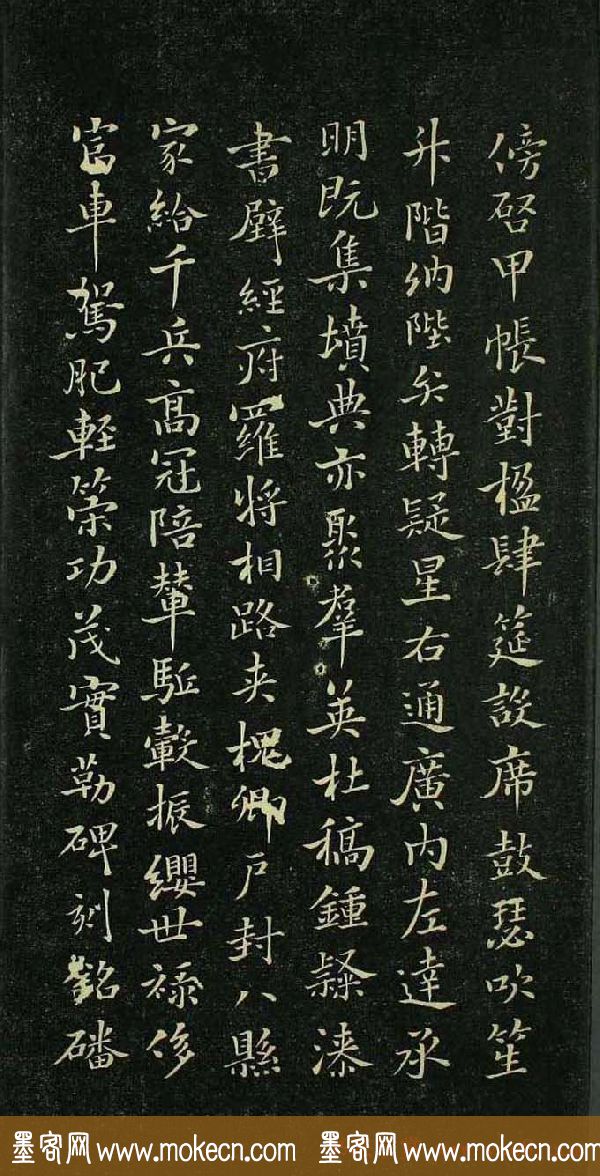 傍啓甲帳對楹肆筵設席鼓瑟吹笙
升階納陛弁轉疑星右通廣內左達承
明既集墳典亦聚羣英杜稿鍾隸漆
書壁經府羅將相路夹槐卿戶封八縣
家給千兵高冠陪輦駈轂振纓世祿侈
富車駕肥輕策功茂實勒碑刻銘磻
墨客网 www.mokecn.com 墨客网 www.mokecn.com